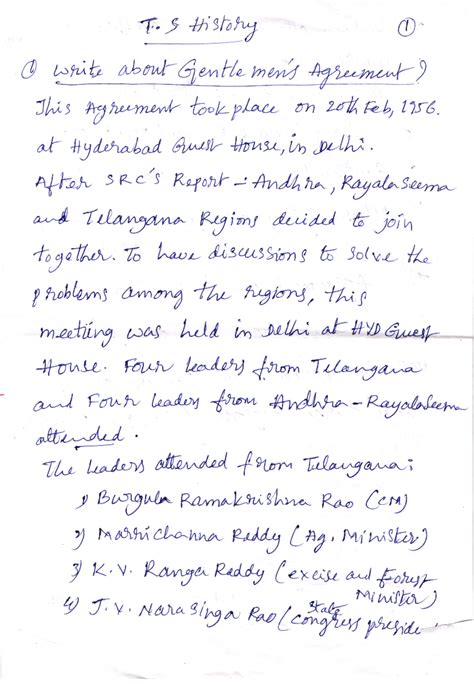 T.S History
①
① Write about Gentlemen's Agreement?
This Agreement took place on 20th Feb, 1956.
at Hyderabad Guest House, in Delhi.
After SRC's Report - Andhra, Rayalaseema
and Telangana Regions decided to join
together. To have discussions to solve the
problems among the regions, this
meeting was held in Delhi at HYD Guest
House. Four leaders from Telangana
and Four leaders from Andhra-Rayalaseema
attended.
The leaders attended from Telangana:
1) Burgula Ramakrishna Rao (CM)
2) Marrichanna Reddy (Ag. Minister)
3) K.V. Ranga Reddy (excise and Forest
Minister)
4) J.V. Narasinga Rao (State
congress preside